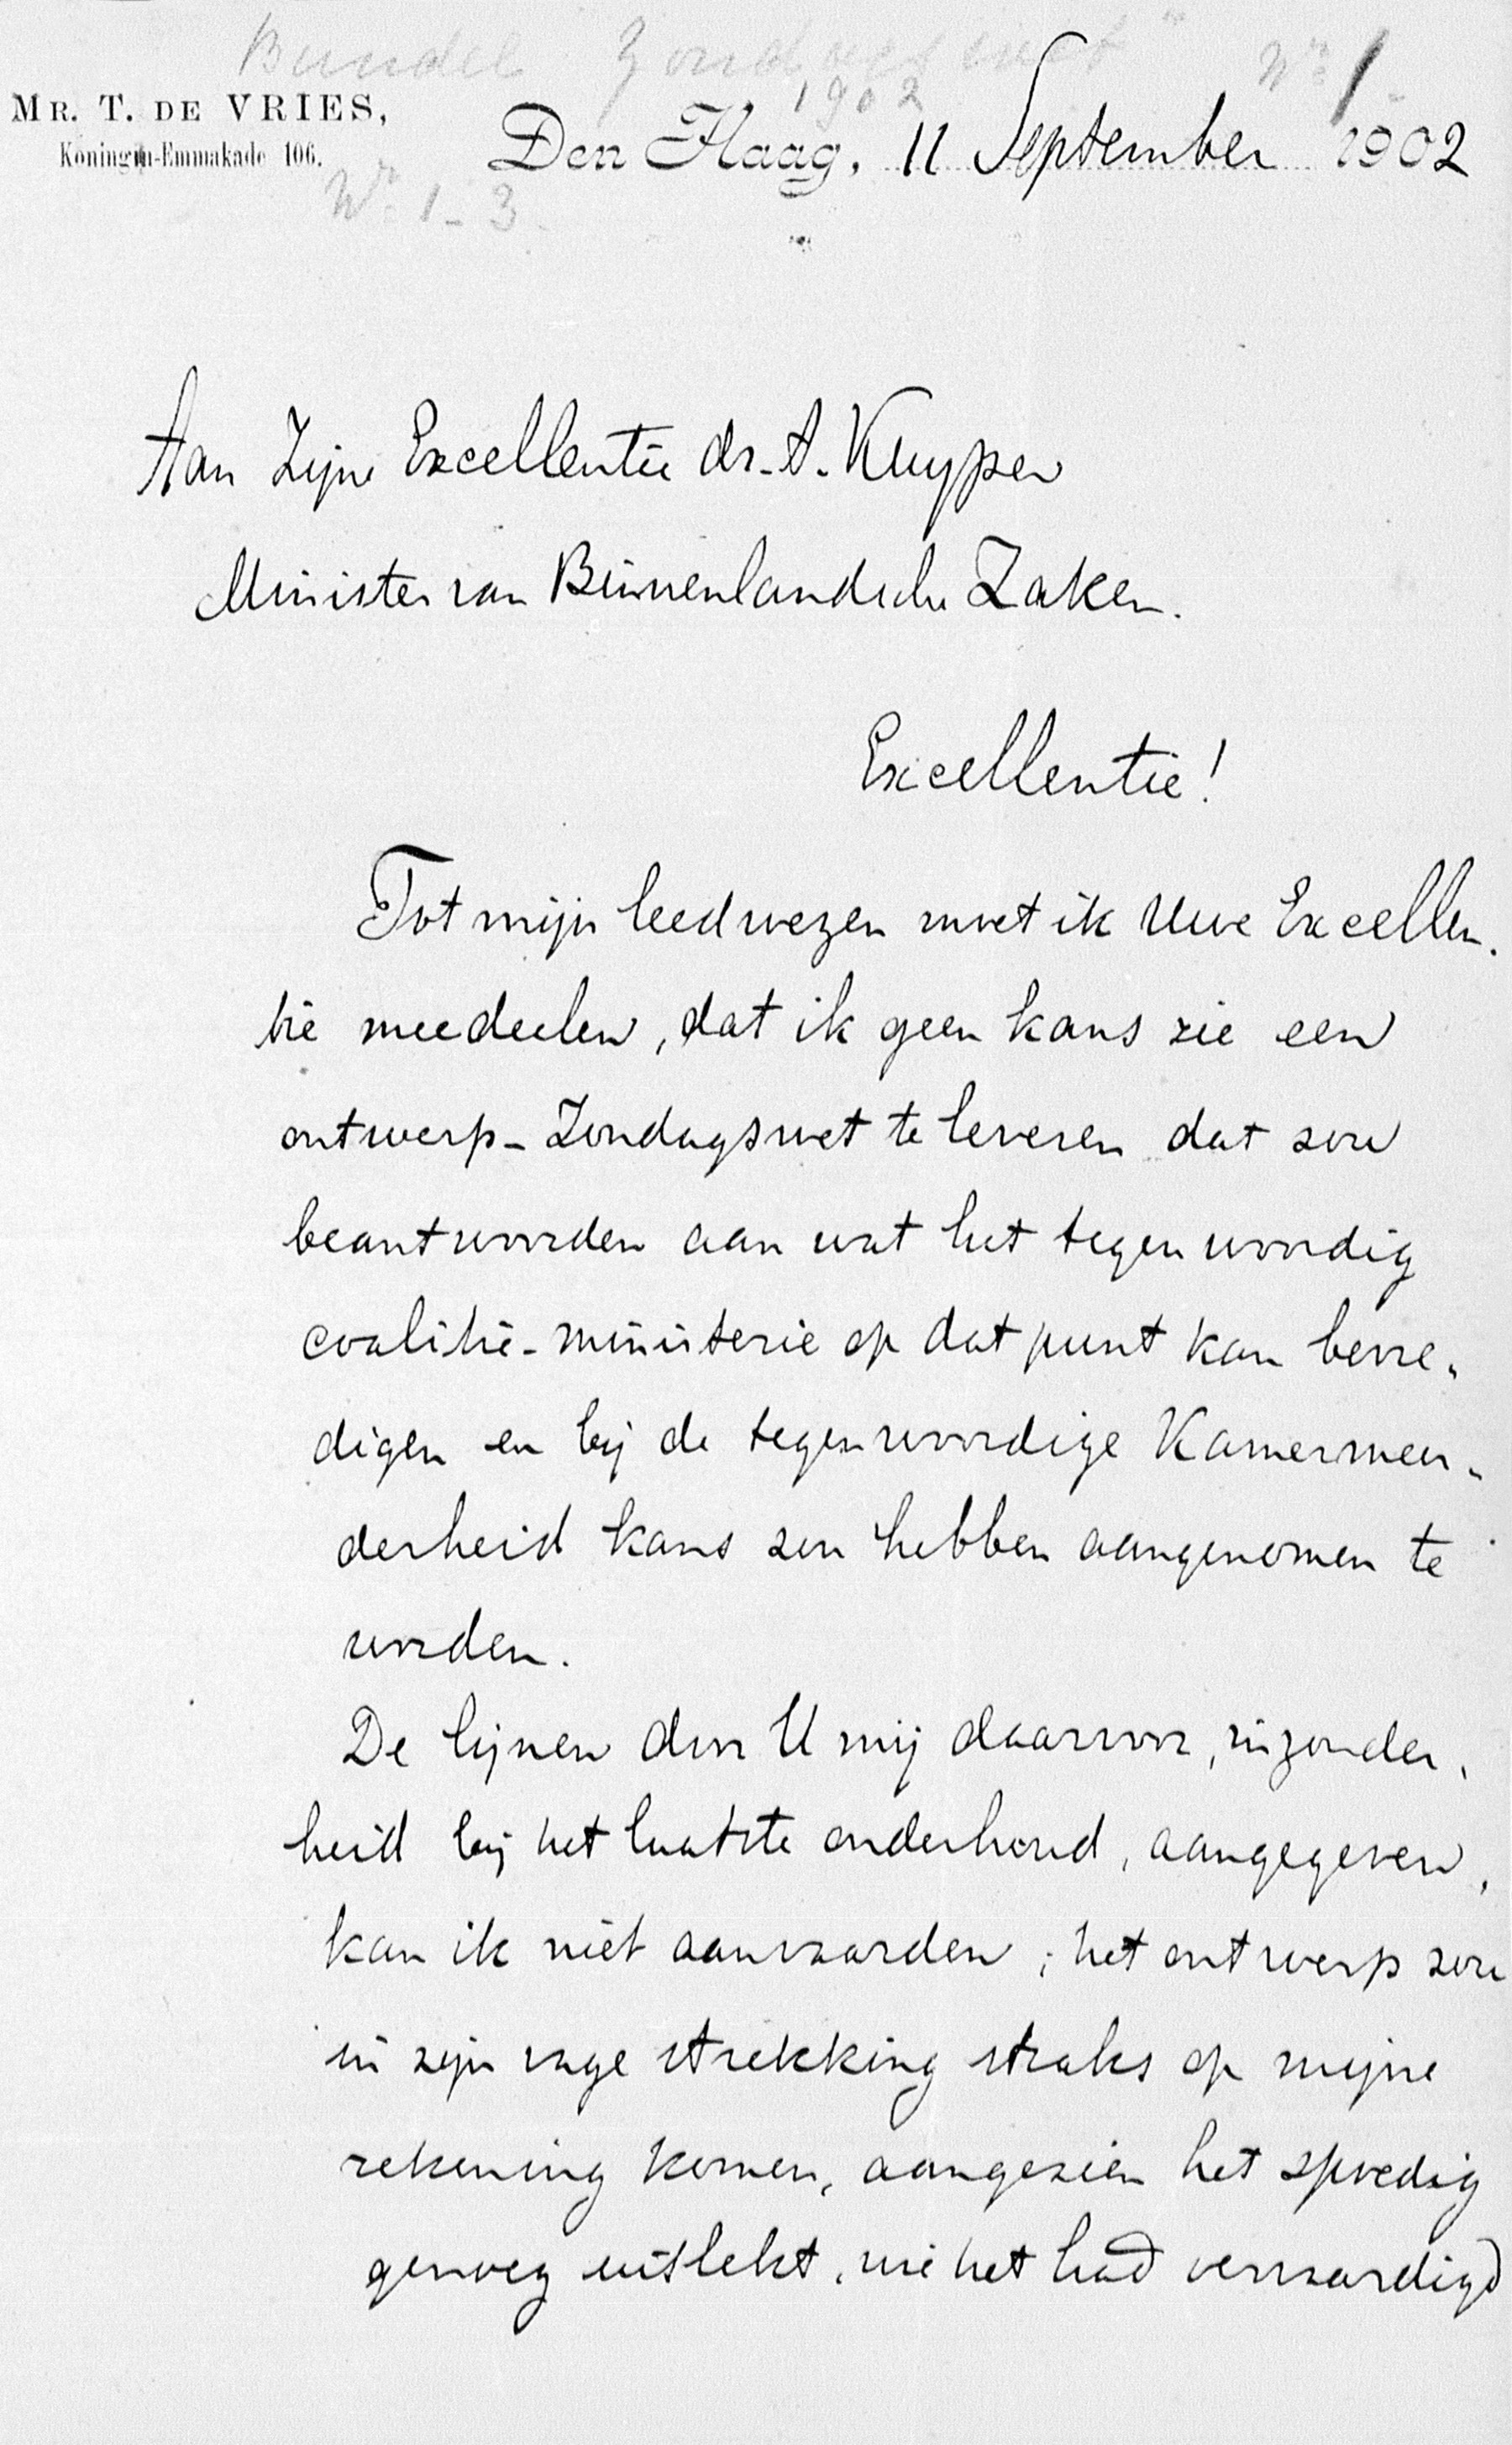 Bundel Zondagswet No 1
1902
MR. T. DE VRIES,
Koningin-Emmakade 106.
Den Haag, 11 September 1902
No. 1-3
Aan Zijne Excellentie dr. A. Kuyper
Minister van Binnenlandsche Zaken.
Excellentie!
Tot mijn leedwezen moet ik Uwe Excellen-
tie meedeelen, dat ik geen kans zie een
ontwerp-Zondagswet te leveren dat zou
beantwoorden aan wat het tegenwoordig
coalitie-ministerie op dat punt kan bevre-
digen en bij de tegenwoordige Kamermeer-
derheid kans zou hebben aangenomen te
worden.
De lijnen door U mij daarvoor, inzonder-
heid bij het laatste onderhoud, aangegeven,
kan ik niet aanvaarden; het ontwerp zou
in zijn vage strekking straks op mijne
rekening komen, aangezien het spoedig
genoeg uitlekt, wie het had vervaardigd